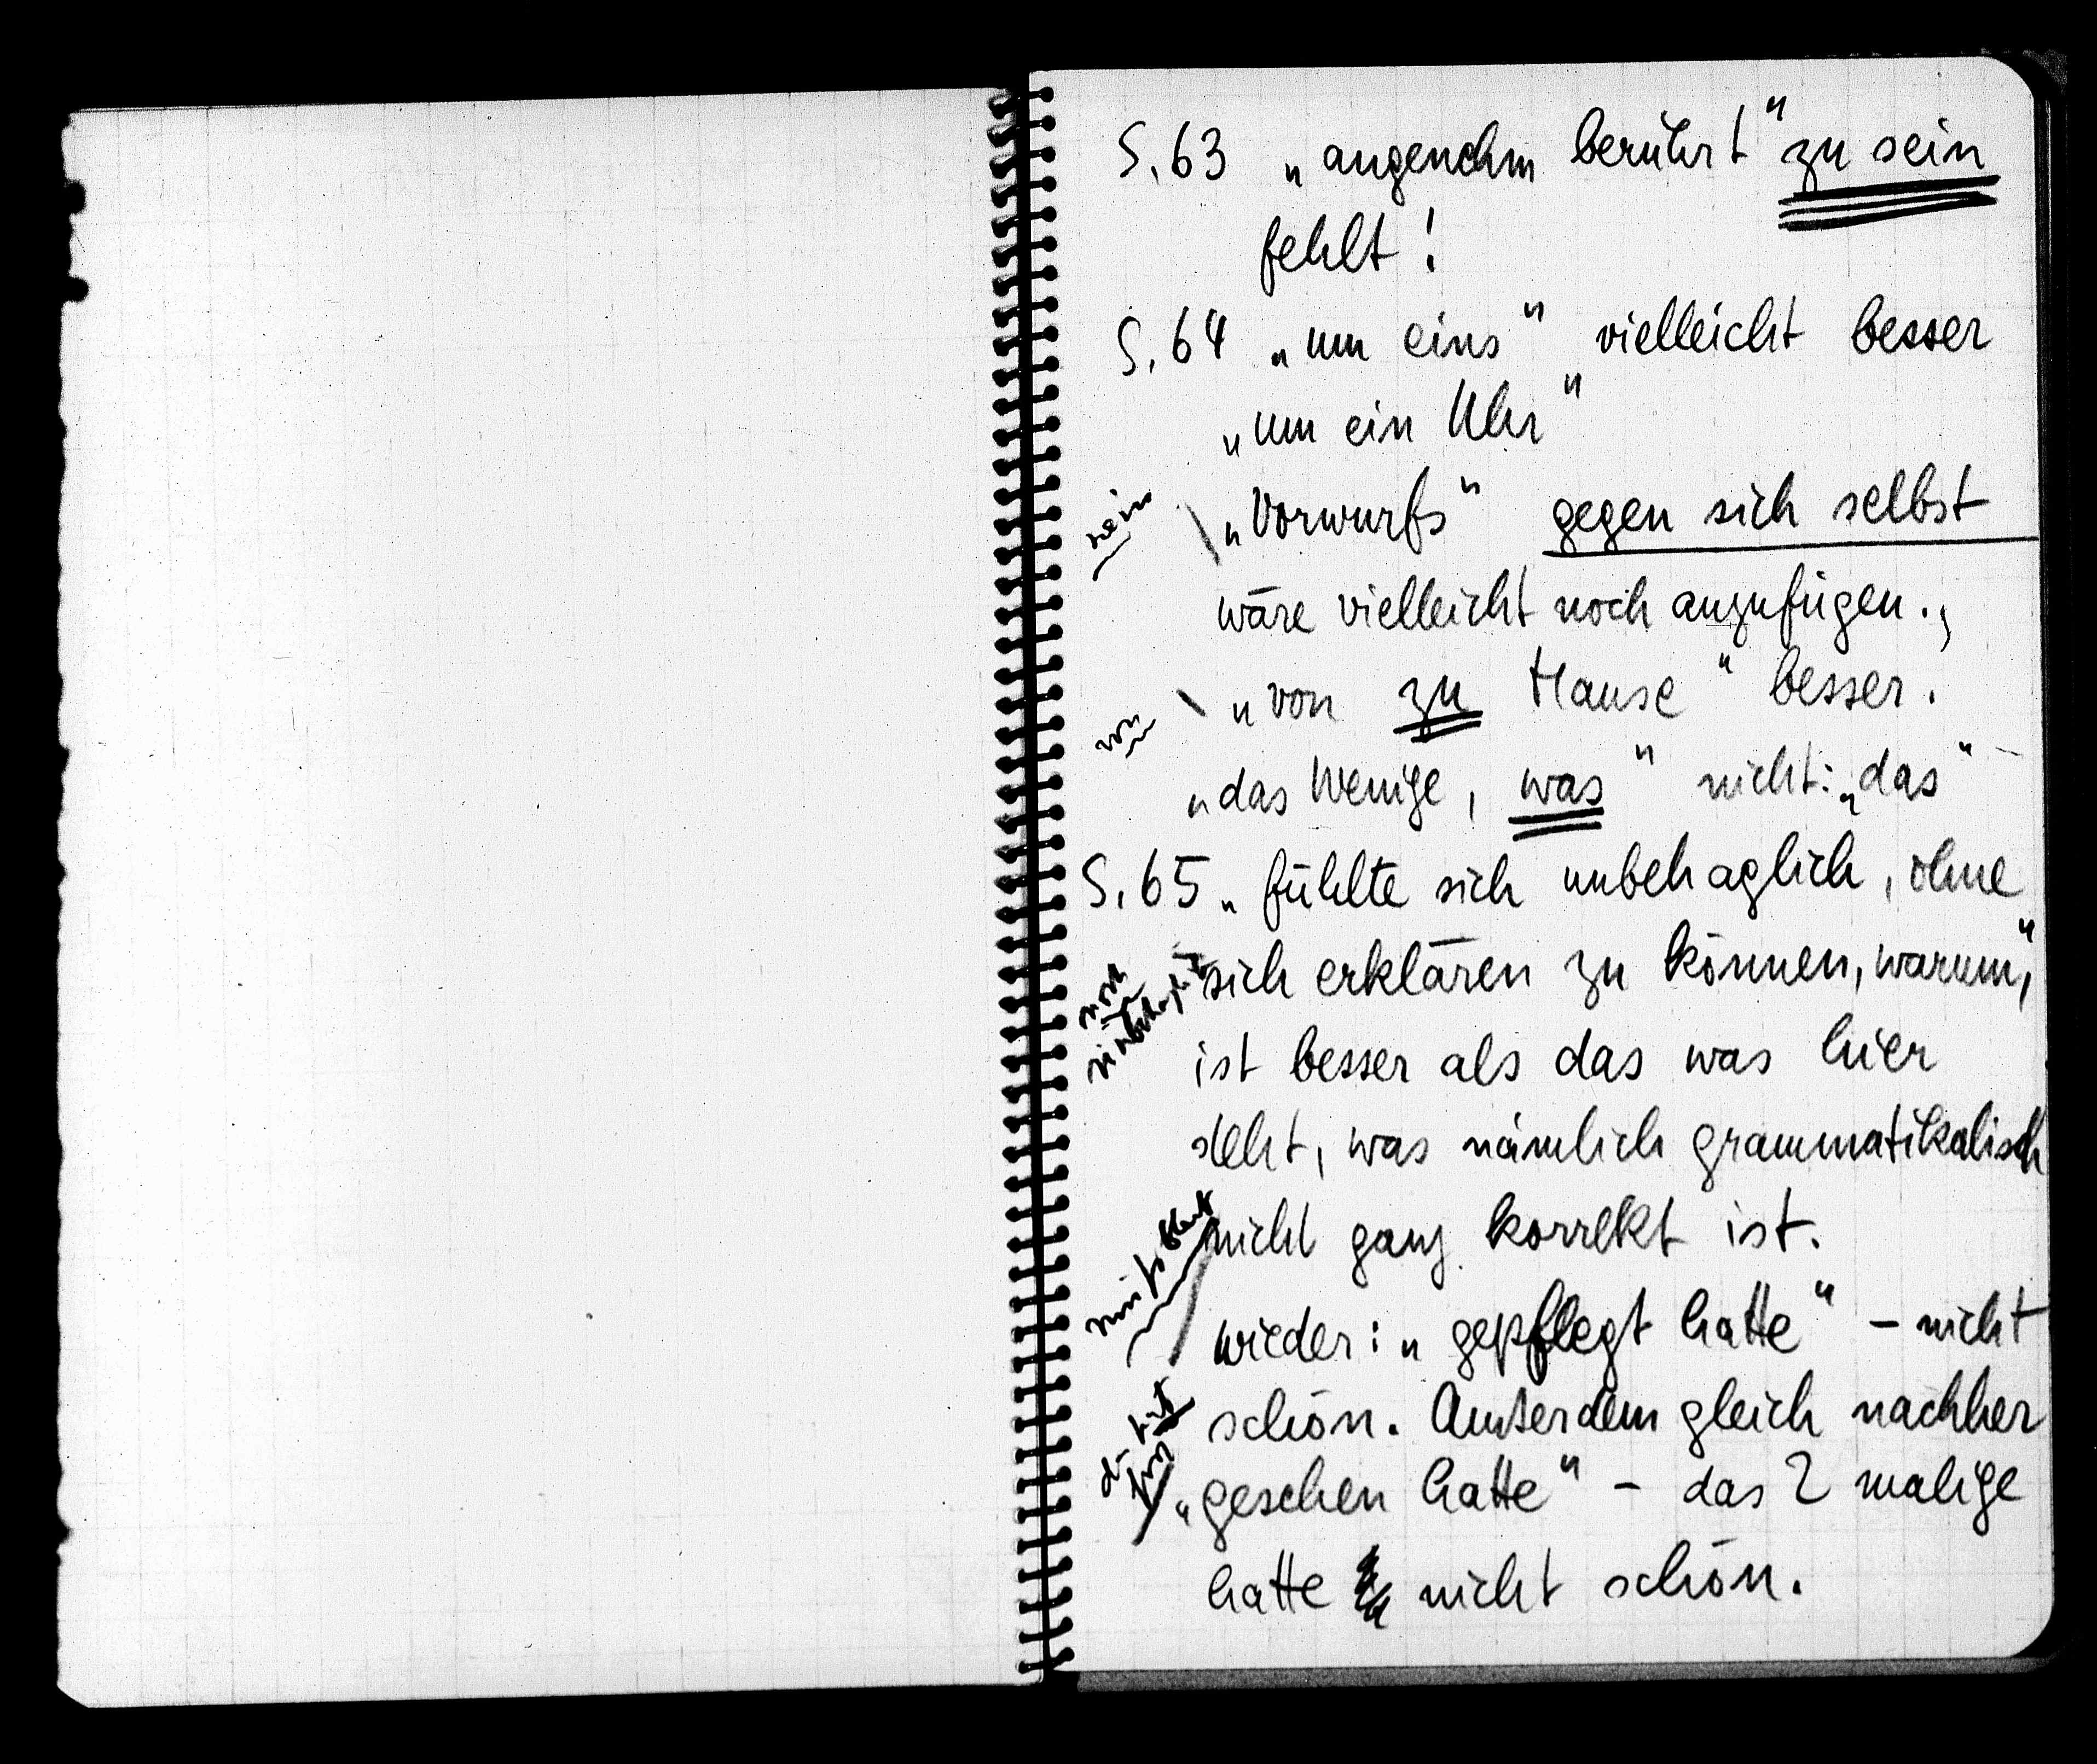 S. 63 „angenehm berührt" zu sein
fehlt!
S. 64 „um eins" vielleicht besser
„um ein Uhr"
nein
„Vorwurfs" gegen sich selbst
wäre vielleicht noch anzufügen.,
„von zu Hause" besser.
von
„das Wenige, was" nicht: „das"
S. 65 „fühlte sich unbehaglich, ohne
sich erklären zu können, warum",
ist besser als das was hier
steht, was nämlich grammatikalisch
nicht ganz korrekt ist.
wieder: „gepflegt hatte" – nicht
schön. Außerdem gleich nachher
„gesehen hatte" – das 2 malige
hatte nicht schön.